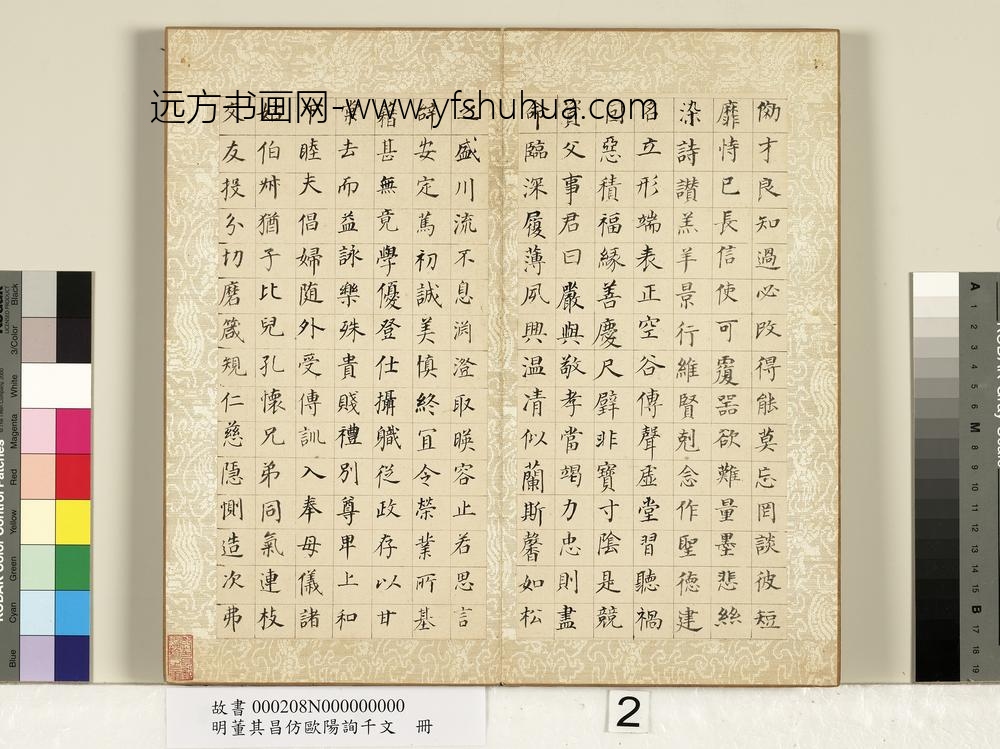 远方书画网-www.yfshuhua.com
効才良知過必改得能莫忘罔談彼短
靡恃己長信使可覆器欲難量墨悲絲
染詩讃羔羊景行維賢剋念作聖德建
名立形端表正空谷傳聲虛堂習聽禍
因惡積福緣善慶尺璧非寶寸陰是競
資父事君曰嚴與敬孝當竭力忠則盡
命臨深履薄夙興温凊似蘭斯馨如松
之盛川流不息淵澄取暎容止若思言
辭安定篤初誠美慎終宜令榮業所基
籍甚無竟學優登仕攝職從政存以甘
棠去而益詠樂殊貴賤禮別尊卑上和
下睦夫倡婦随外受傅訓入奉母儀諸
姑伯叔猶子比兒孔懷兄弟同氣連枝
交友投分切磨箴規仁慈隱惻造次弗
故書 000208N000000000
明董其昌仿歐陽詢千文 冊
2